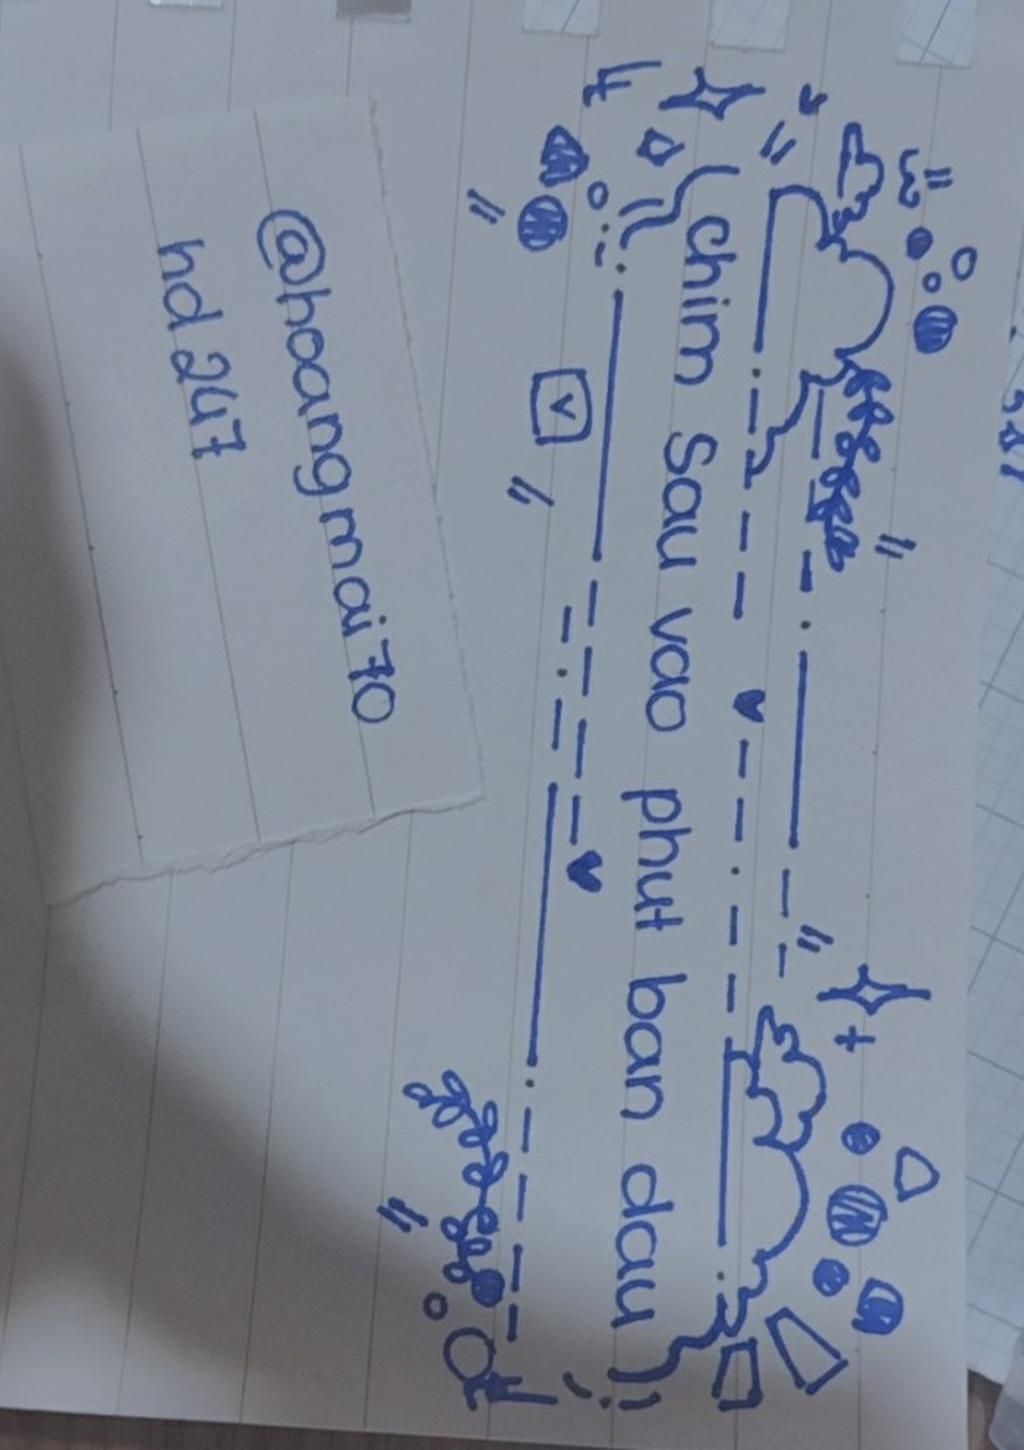 chim Sau vao phut ban dau
@hoangmai70
hd 247